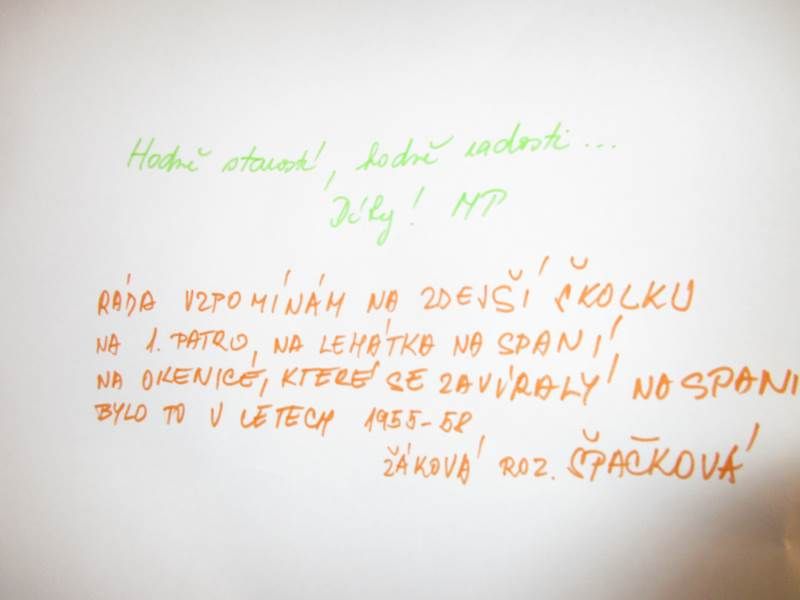 Hodně starostí, hodně radosti...
Díky! MP
RÁDA VZPOMÍNÁM NA ZDEJŠÍ ŠKOLKU
NA 1. PATRO, NA LEHÁTKA NA SPANÍ
NA OKENICE, KTERÉ SE ZAVÍRALY NA SPANÍ
BYLO TO V LETECH 1955-58
ŽÁKOVÁ ROZ. ŠPAČKOVÁ